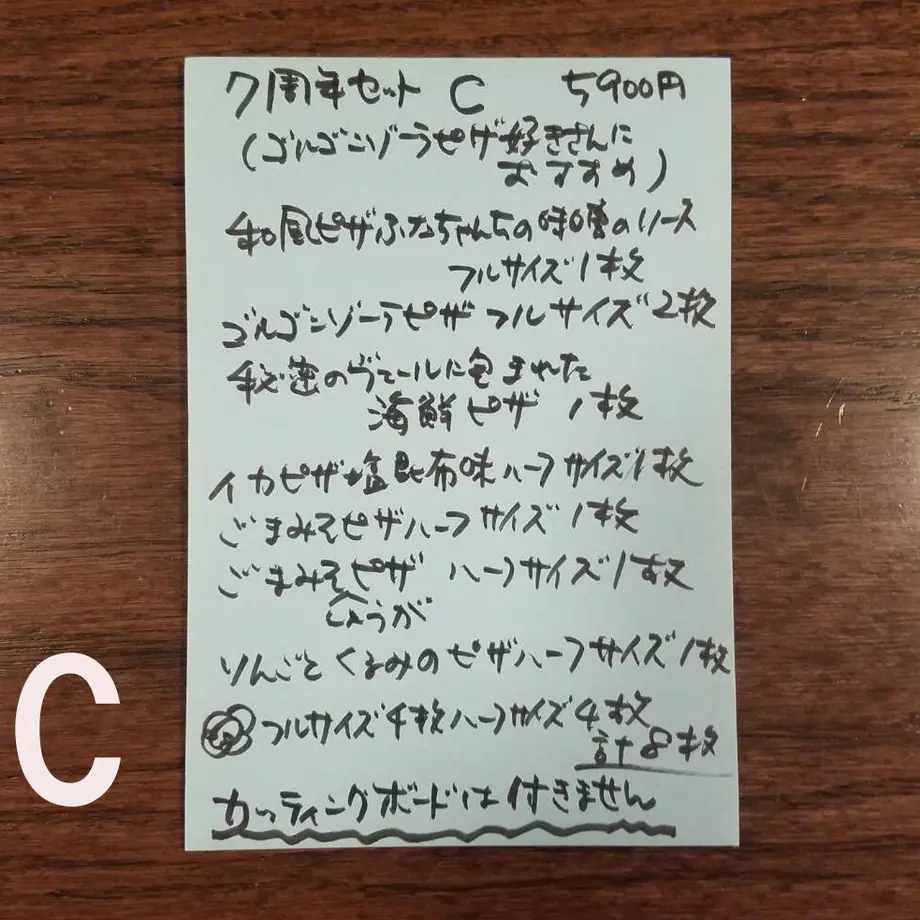 7周年セット C 5900円
(ゴルゴンゾーラピザ好きさんに
おすすめ)
和風ピザふなちゃんちの味噌のソース
フルサイズ1枚
ゴルゴンゾーラピザ フルサイズ2枚
秘密のヴェールに包まれた
海鮮ピザ 1枚
イカピザ塩昆布味ハーフサイズ1枚
ごまみそピザハーフサイズ1枚
ごまみそピザ ハーフサイズ1枚
しょうが
りんごとくるみのピザハーフサイズ1枚
フルサイズ4枚ハーフサイズ4枚
計8枚
カッティングボードは付きません
C